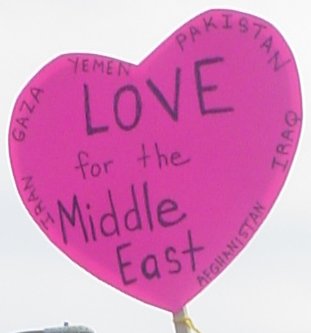 LOVE
for the
Middle
East
IRAN
GAZA
YEMEN
PAKISTAN
IRAQ
AFGHANISTAN